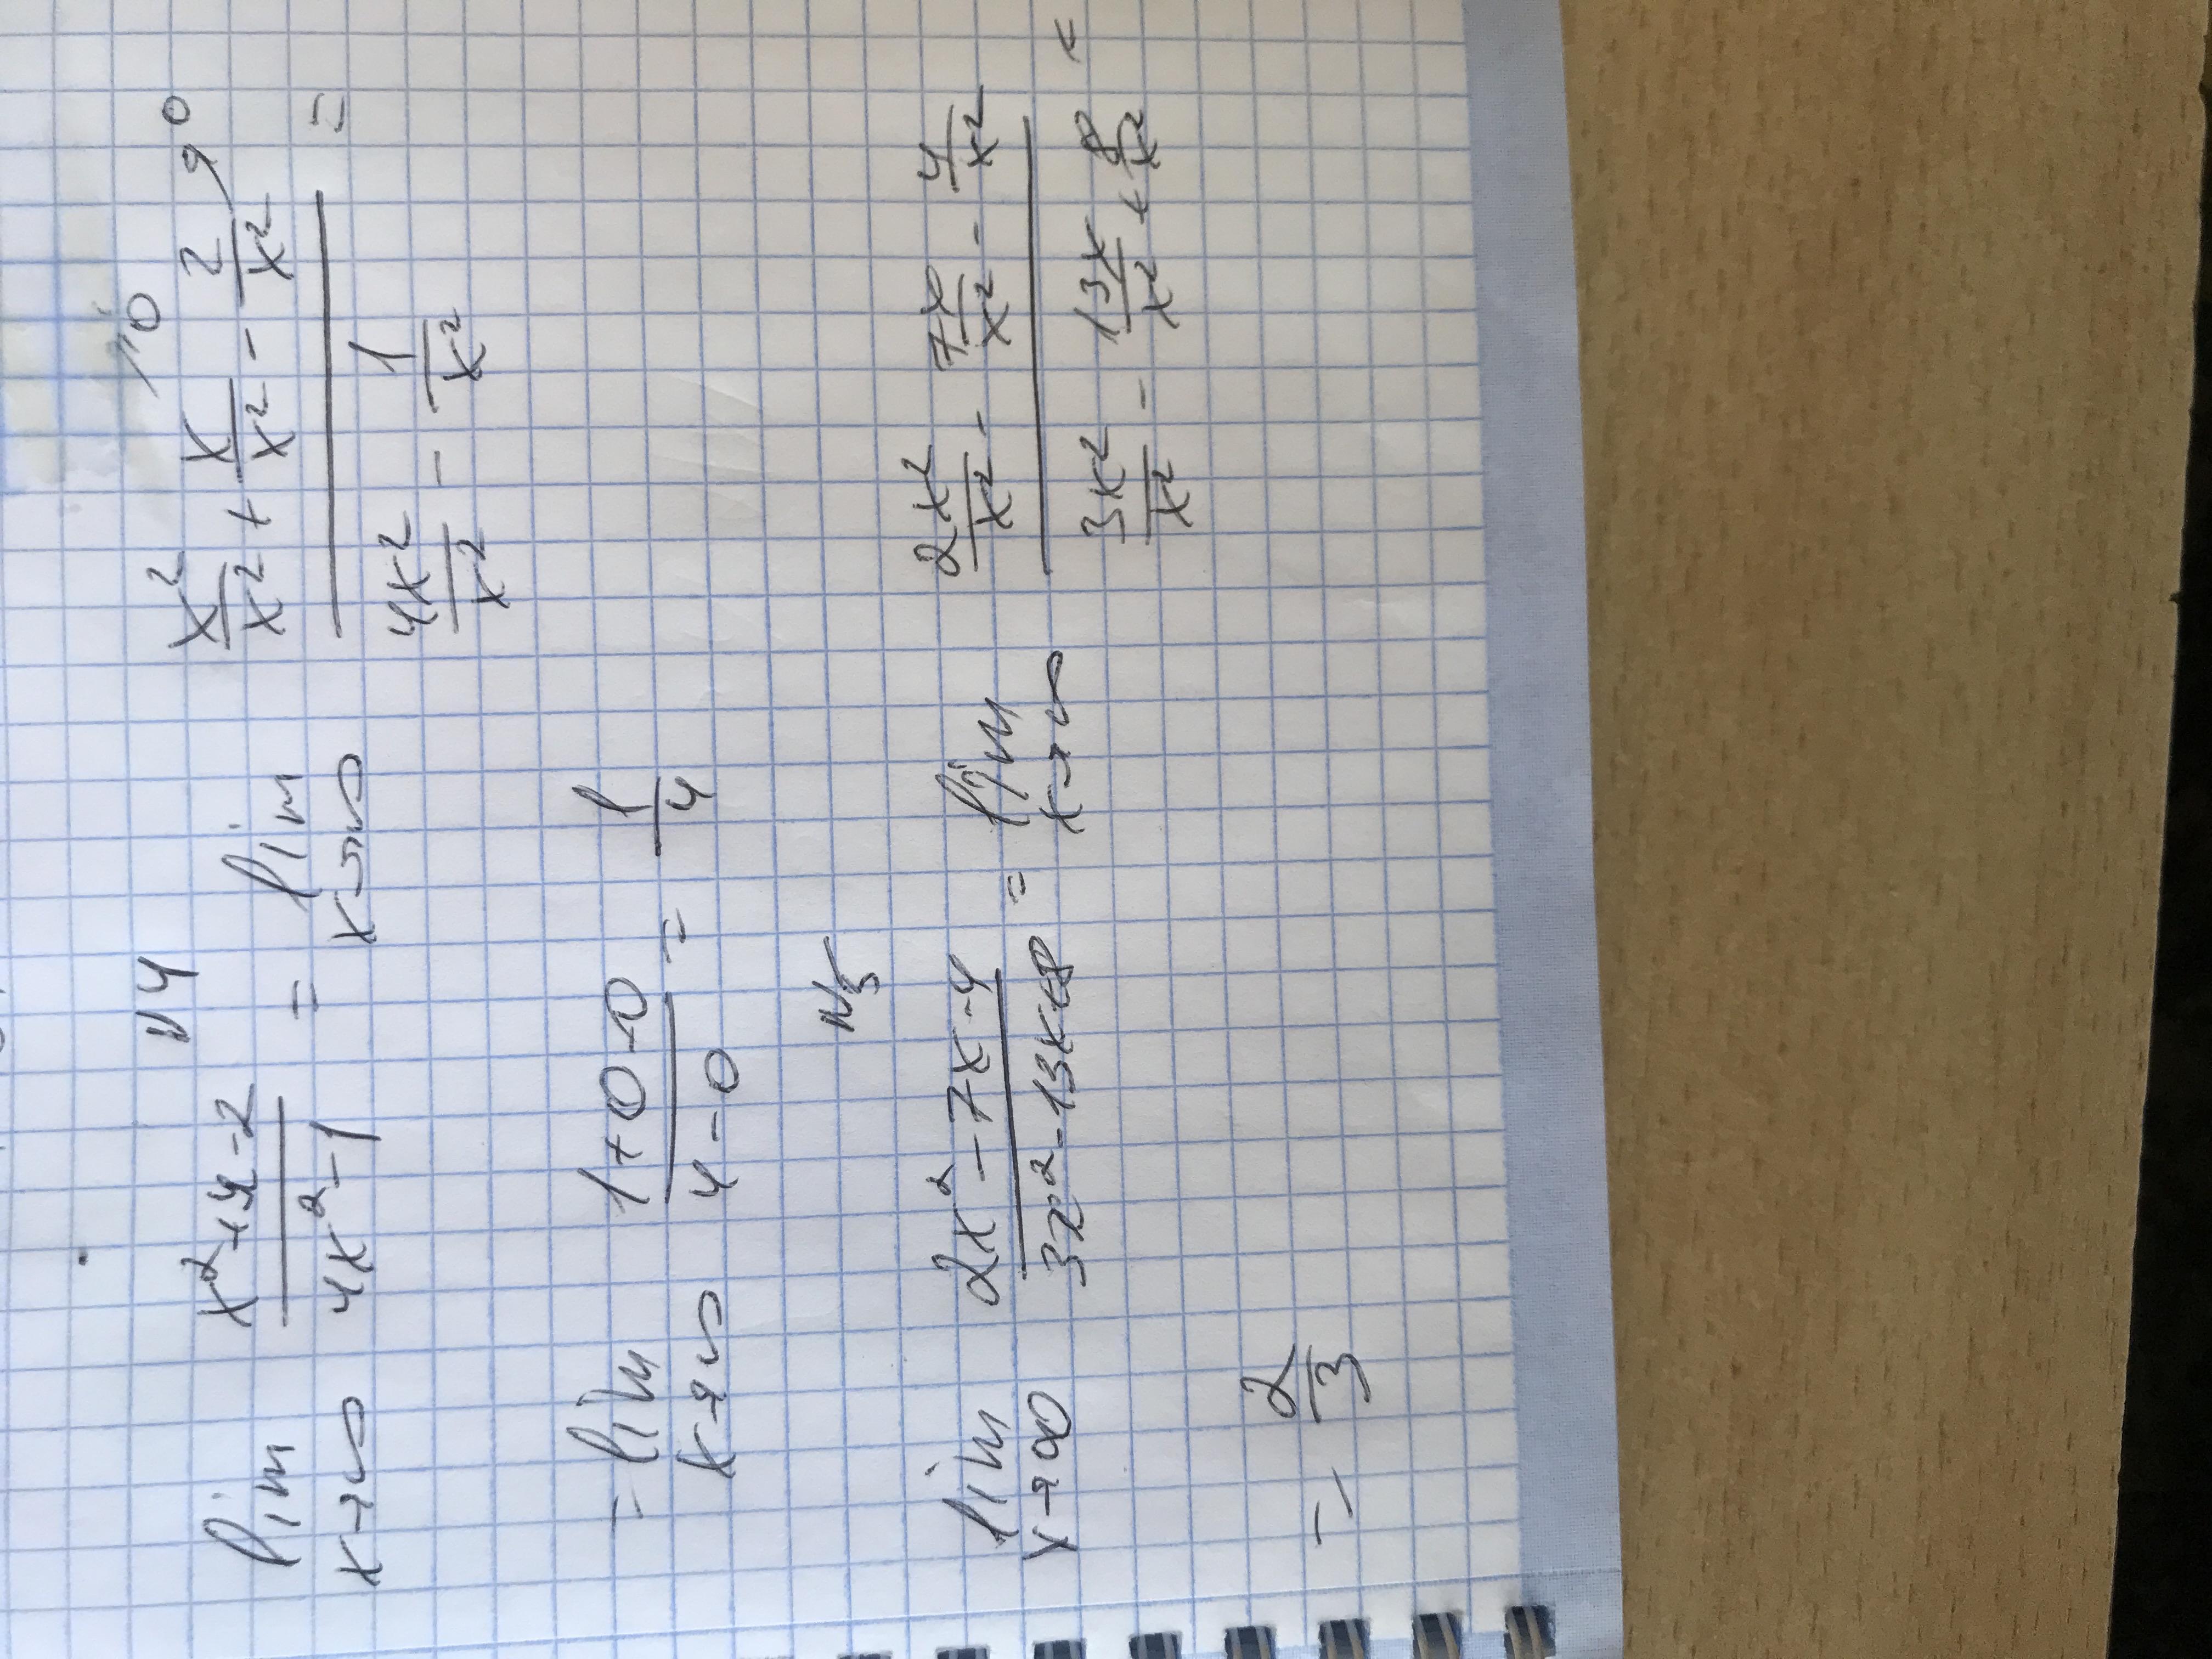 N4
lim x→∞ (x²+x-2)/(4x²-1) = lim x→∞ (x²/x² + x/x² - 2/x²)/(4x²/x² - 1/x²) =
= lim x→∞ (1+0-0)/(4-0) = 1/4
N5
lim x→∞ (2x²-7x-4)/(3x²-13x+8) = lim x→∞ (2x²/x² - 7x/x² - 4/x²)/(3x²/x² - 13x/x² + 8/x²) =
= 2/3